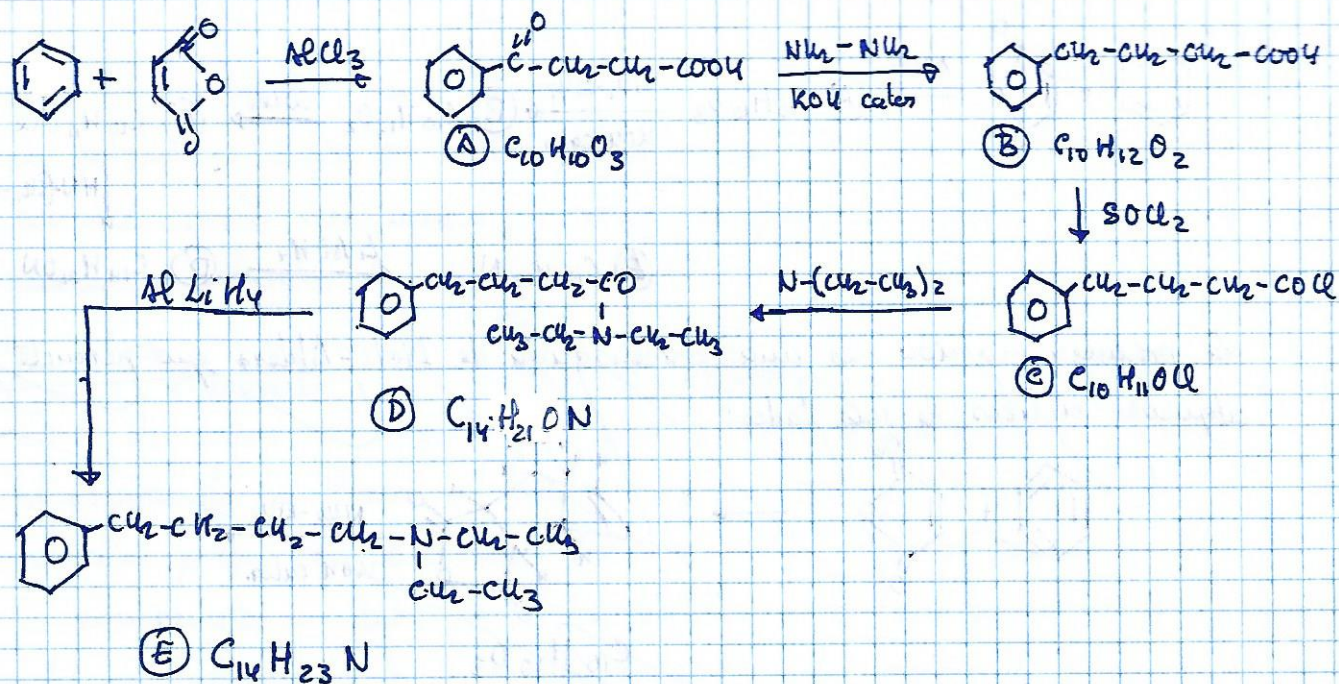 + O O O AlCl3 O C-CH2-CH2-COOH NH2-NH2 KOH calor CH2-CH2-CH2-COOH
A C10H10O3
B C10H12O2
SOCl2
CH2-CH2-CH2-COCl
C C10H11OCl
N-(CH2-CH3)2
CH2-CH2-CH2-CO
CH3-CH2-N-CH2-CH3
D C14H21ON
AlLiH4
CH2-CH2-CH2-CH2-N-CH2-CH3
CH2-CH3
E C14H23N